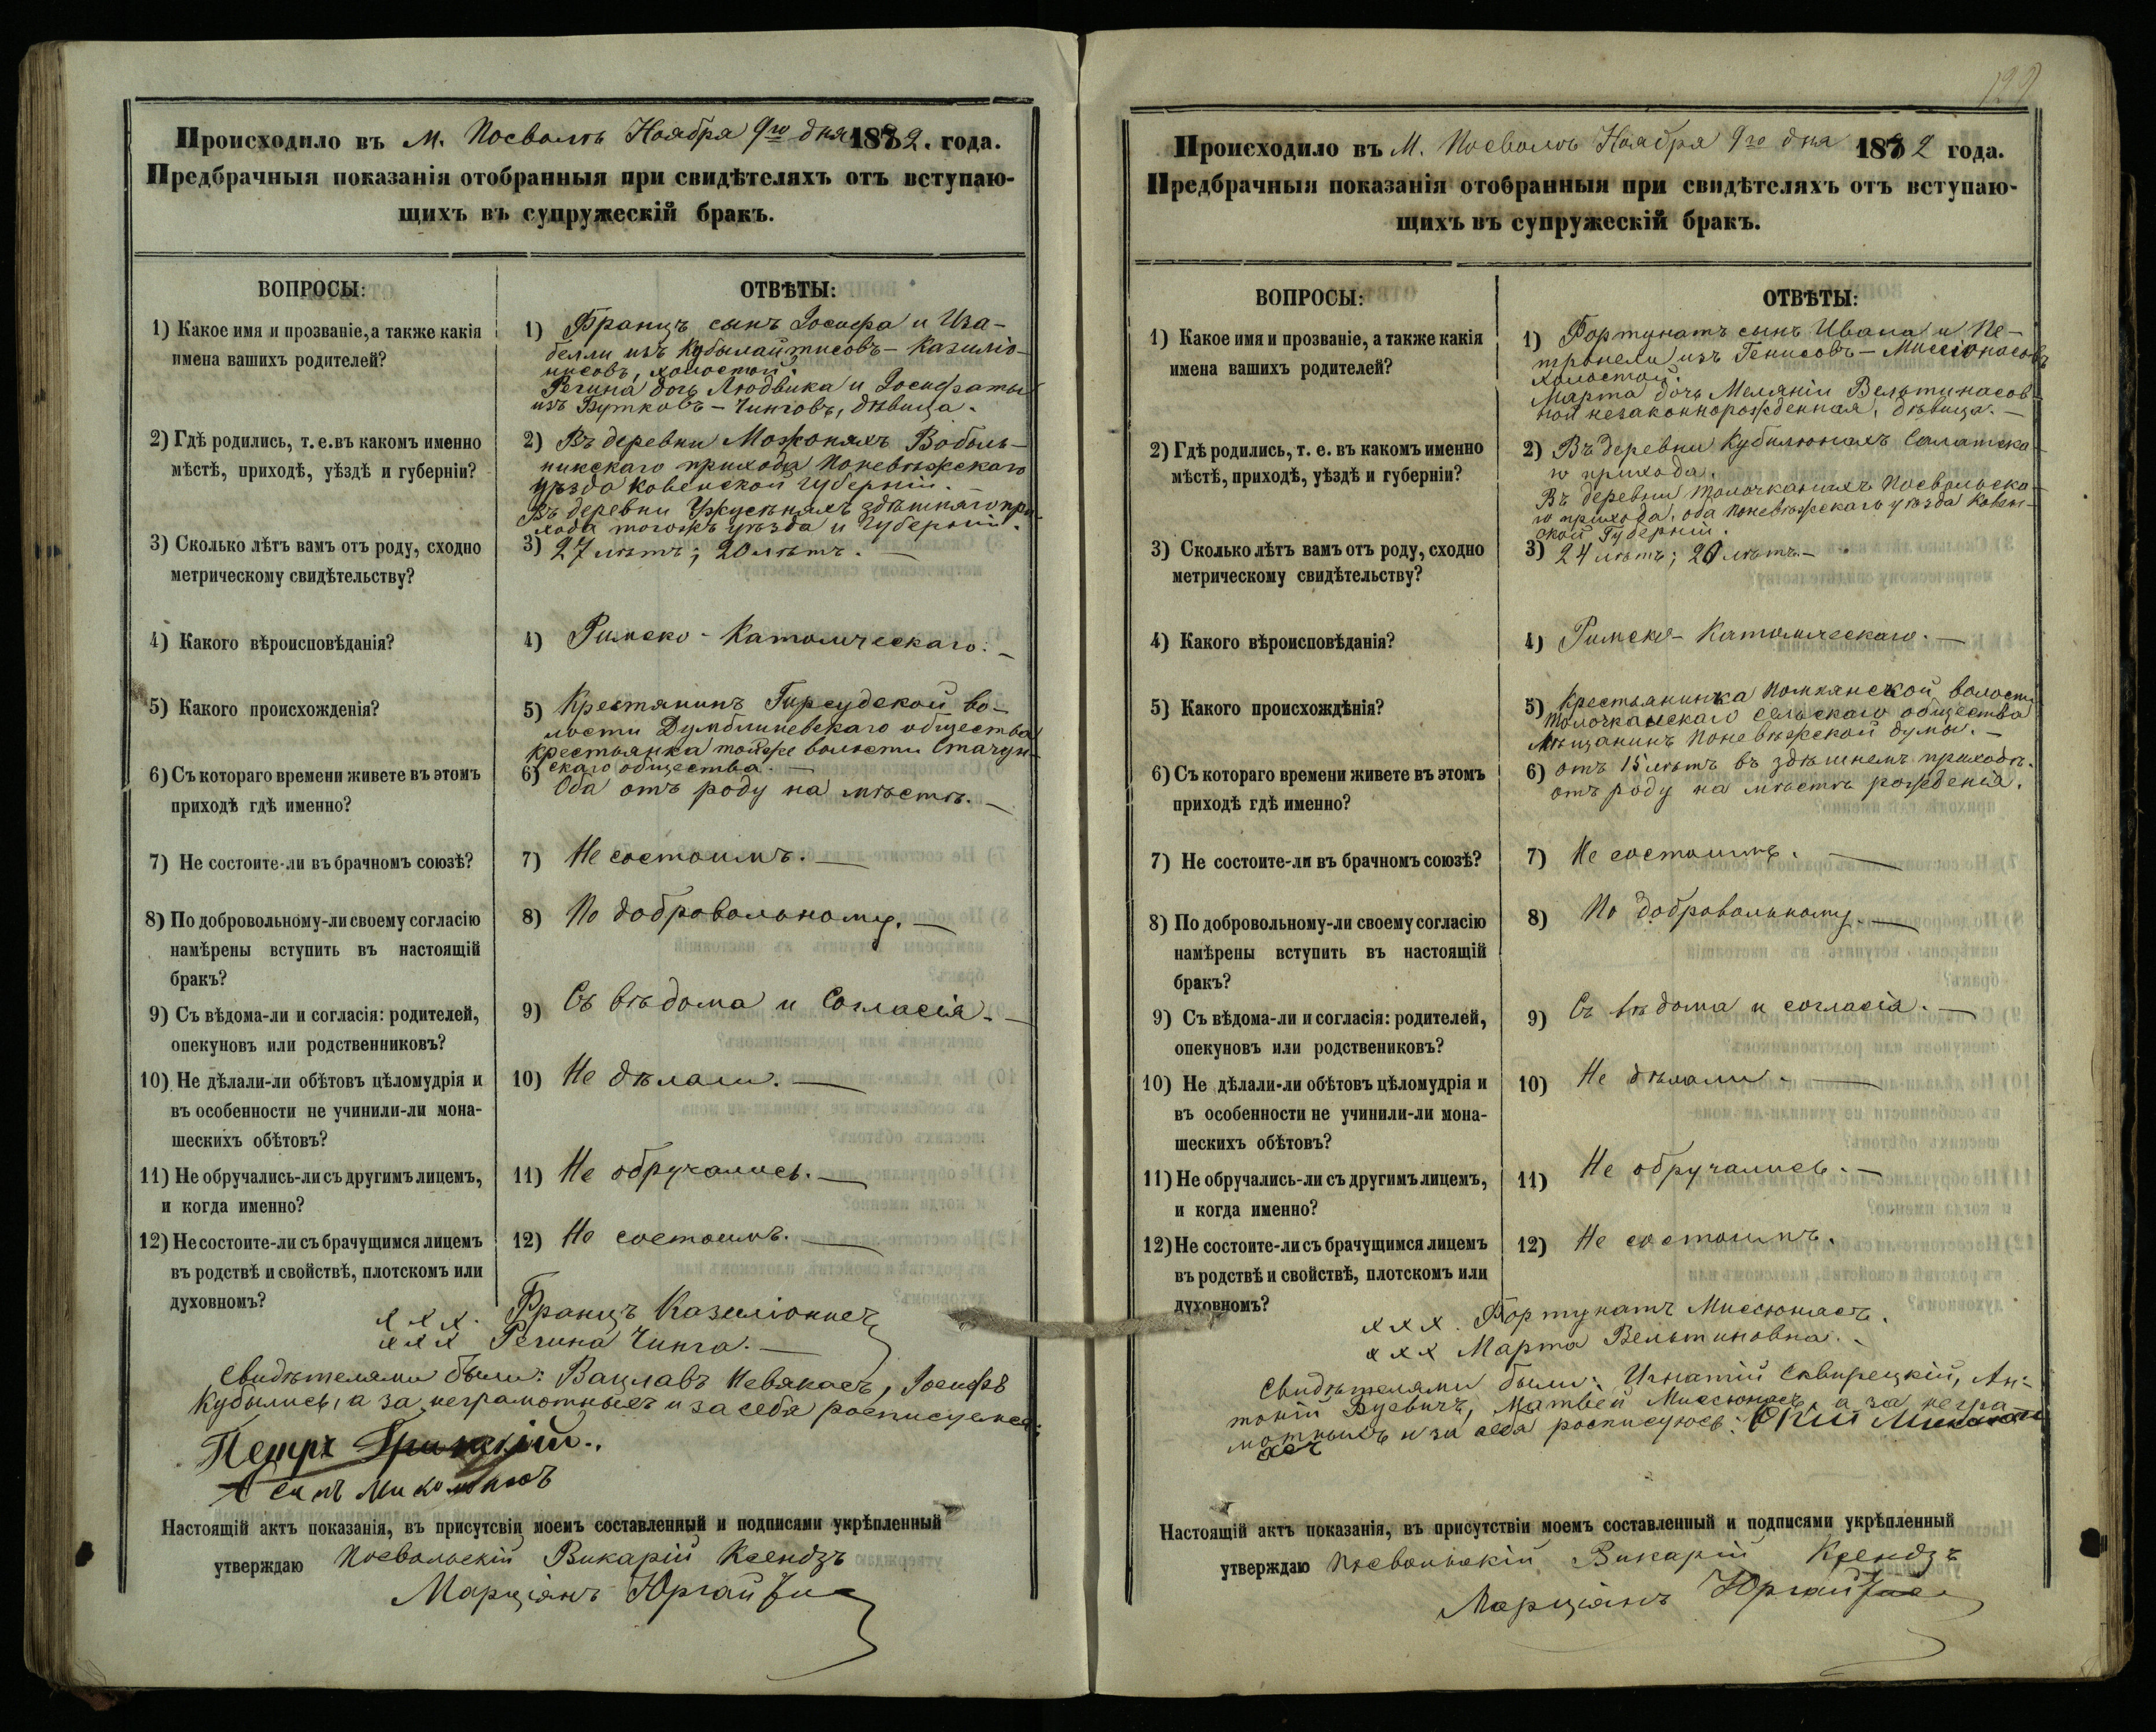 Происходило въ м. Посволѣ Ноября 9го дня 1882. года.
Предбрачныя показанія отобранныя при свидѣтеляхъ отъ вступаю-
щихъ въ супружескій бракъ.
ВОПРОСЫ:
ОТВѢТЫ:
1) Какое имя и прозваніе, а также какія
имена вашихъ родителей?
1) Францъ сынъ Іосифа и Иза-
белли изъ Кубылайтисовъ - Казиліо-
нисовъ, холостой.
Регина дочь Людвика и Іосифаты
изъ Бутковъ - Чинговъ, дѣвица.
2) Гдѣ родились, т. е. въ какомъ именно
мѣстѣ, приходѣ, уѣздѣ и губерніи?
2) Въ деревни Можоняхъ Воболь-
никскаго прихода Поневѣжскаго
уѣзда Ковенской губерніи. —
Въ деревни Ужусѣняхъ здѣшняго при-
хода тогожъ уѣзда и Губерніи.
3) Сколько лѣтъ вамъ отъ роду, сходно
метрическому свидѣтельству?
3) 27 лѣтъ; 20 лѣтъ. —
4) Какого вѣроисповѣданія?
4) Римско - Католическаго. —
5) Какого происхожденія?
5) Крестянинъ Гирсудской во-
лости Думблиневскаго общества
крестьянка тойже волости Стачун-
скаго общества. —
6) Съ котораго времени живете въ этомъ
приходѣ гдѣ именно?
6) Оба отъ роду на мѣстѣ. —
7) Не состоите-ли въ брачномъ союзѣ?
7) Не состоимъ. —
8) По добровольному-ли своему согласію
намѣрены вступить въ настоящій
бракъ?
8) По добровольному. —
9) Съ вѣдома-ли и согласія: родителей,
опекуновъ или родственниковъ?
9) Съ вѣдома и Согласія. —
10) Не дѣлали-ли обѣтовъ цѣломудрія и
въ особенности не учинили-ли мона-
шескихъ обѣтовъ?
10) Не дѣлали. —
11) Не обручались-ли съ другимъ лицемъ,
и когда именно?
11) Не обручались. —
12) Не состоите-ли съ брачущимся лицемъ
въ родствѣ и свойствѣ, плотскомъ или
духовномъ?
12) Не состоимъ. —
х х х. Францъ Казиліонисъ
х х х Регина Чинга. —
Свидѣтелями были: Вацлавъ Невякасъ, Іосифъ
Кубылисъ, а за неграмотныхъ и за себя росписуемся:
Петръ
Настоящій актъ показанія, въ присутсвіи моемъ составленный и подписями укрѣпленный
утверждаю Посвольскій Викарій Ксендзъ
Марціянъ Юргайтис
Происходило въ М. Посволѣ Ноября 9го дня 1882 года.
Предбрачныя показанія отобранныя при свидѣтеляхъ отъ вступаю-
щихъ въ супружескій бракъ.
ВОПРОСЫ:
ОТВѢТЫ:
1) Какое имя и прозваніе, а также какія
имена вашихъ родителей?
1) Фортунатъ сынъ Ивана и Пе-
тронели изъ Генисовъ - Миссюнасовъ
холостой.
Марта дочь Меляніи Вельтинасов-
ной незаконнорожденная, дѣвица. —
2) Гдѣ родились, т. е. въ какомъ именно
мѣстѣ, приходѣ, уѣздѣ и губерніи?
2) Въ деревни Кубилюнахъ Салатска-
го прихода.
Въ деревни Толочканяхъ Посвольска-
го прихода, оба Поневѣжскаго уѣзда Ковен-
ской Губерніи.
3) Сколько лѣтъ вамъ отъ роду, сходно
метрическому свидѣтельству?
3) 24 лѣтъ; 20 лѣтъ. —
4) Какого вѣроисповѣданія?
4) Римско - Католическаго. —
5) Какого происхождѣнія?
5) Крестьянинка Помпянской волости
Толочканскаго сельскаго общества
Мѣщанинъ Поневѣжской думы. —
6) Съ котораго времени живете въ этомъ
приходѣ гдѣ именно?
6) отъ 15 лѣтъ въ здѣшнемъ приходѣ.
отъ роду на мѣстѣ рожденія.
7) Не состоите-ли въ брачномъ союзѣ?
7) Не состоимъ. —
8) По добровольному-ли своему согласію
намѣрены вступить въ настоящій
бракъ?
8) По добровольному. —
9) Съ вѣдома-ли и согласія: родителей,
опекуновъ или родствениковъ?
9) Съ вѣдома и согласія. —
10) Не дѣлали-ли обѣтовъ цѣломудрія и
въ особенности не учинили-ли мона-
шескихъ обѣтовъ?
10) Не дѣлали. —
11) Не обручались-ли съ другимъ лицемъ,
и когда именно?
11) Не обручались. —
12) Не состоите-ли съ брачущимся лицемъ
въ родствѣ и свойствѣ, плотскомъ или
духовномъ?
12) Не состоимъ.
х х х. Фортунатъ Миссюнасъ.
х х х Марта Вельтиновна. —
Свидѣтелями были: Игнатій Сквирецкій, Ан-
тоній Буевичъ, Матвей Миссюнасъ, а за негра-
мотныхъ и за себя росписуюсь:
Настоящій актъ показанія, въ присутствіи моемъ составленный и подписями укрѣпленный
утверждаю Посвольскій Викарій Ксендзъ
Марціянъ Юргайтис